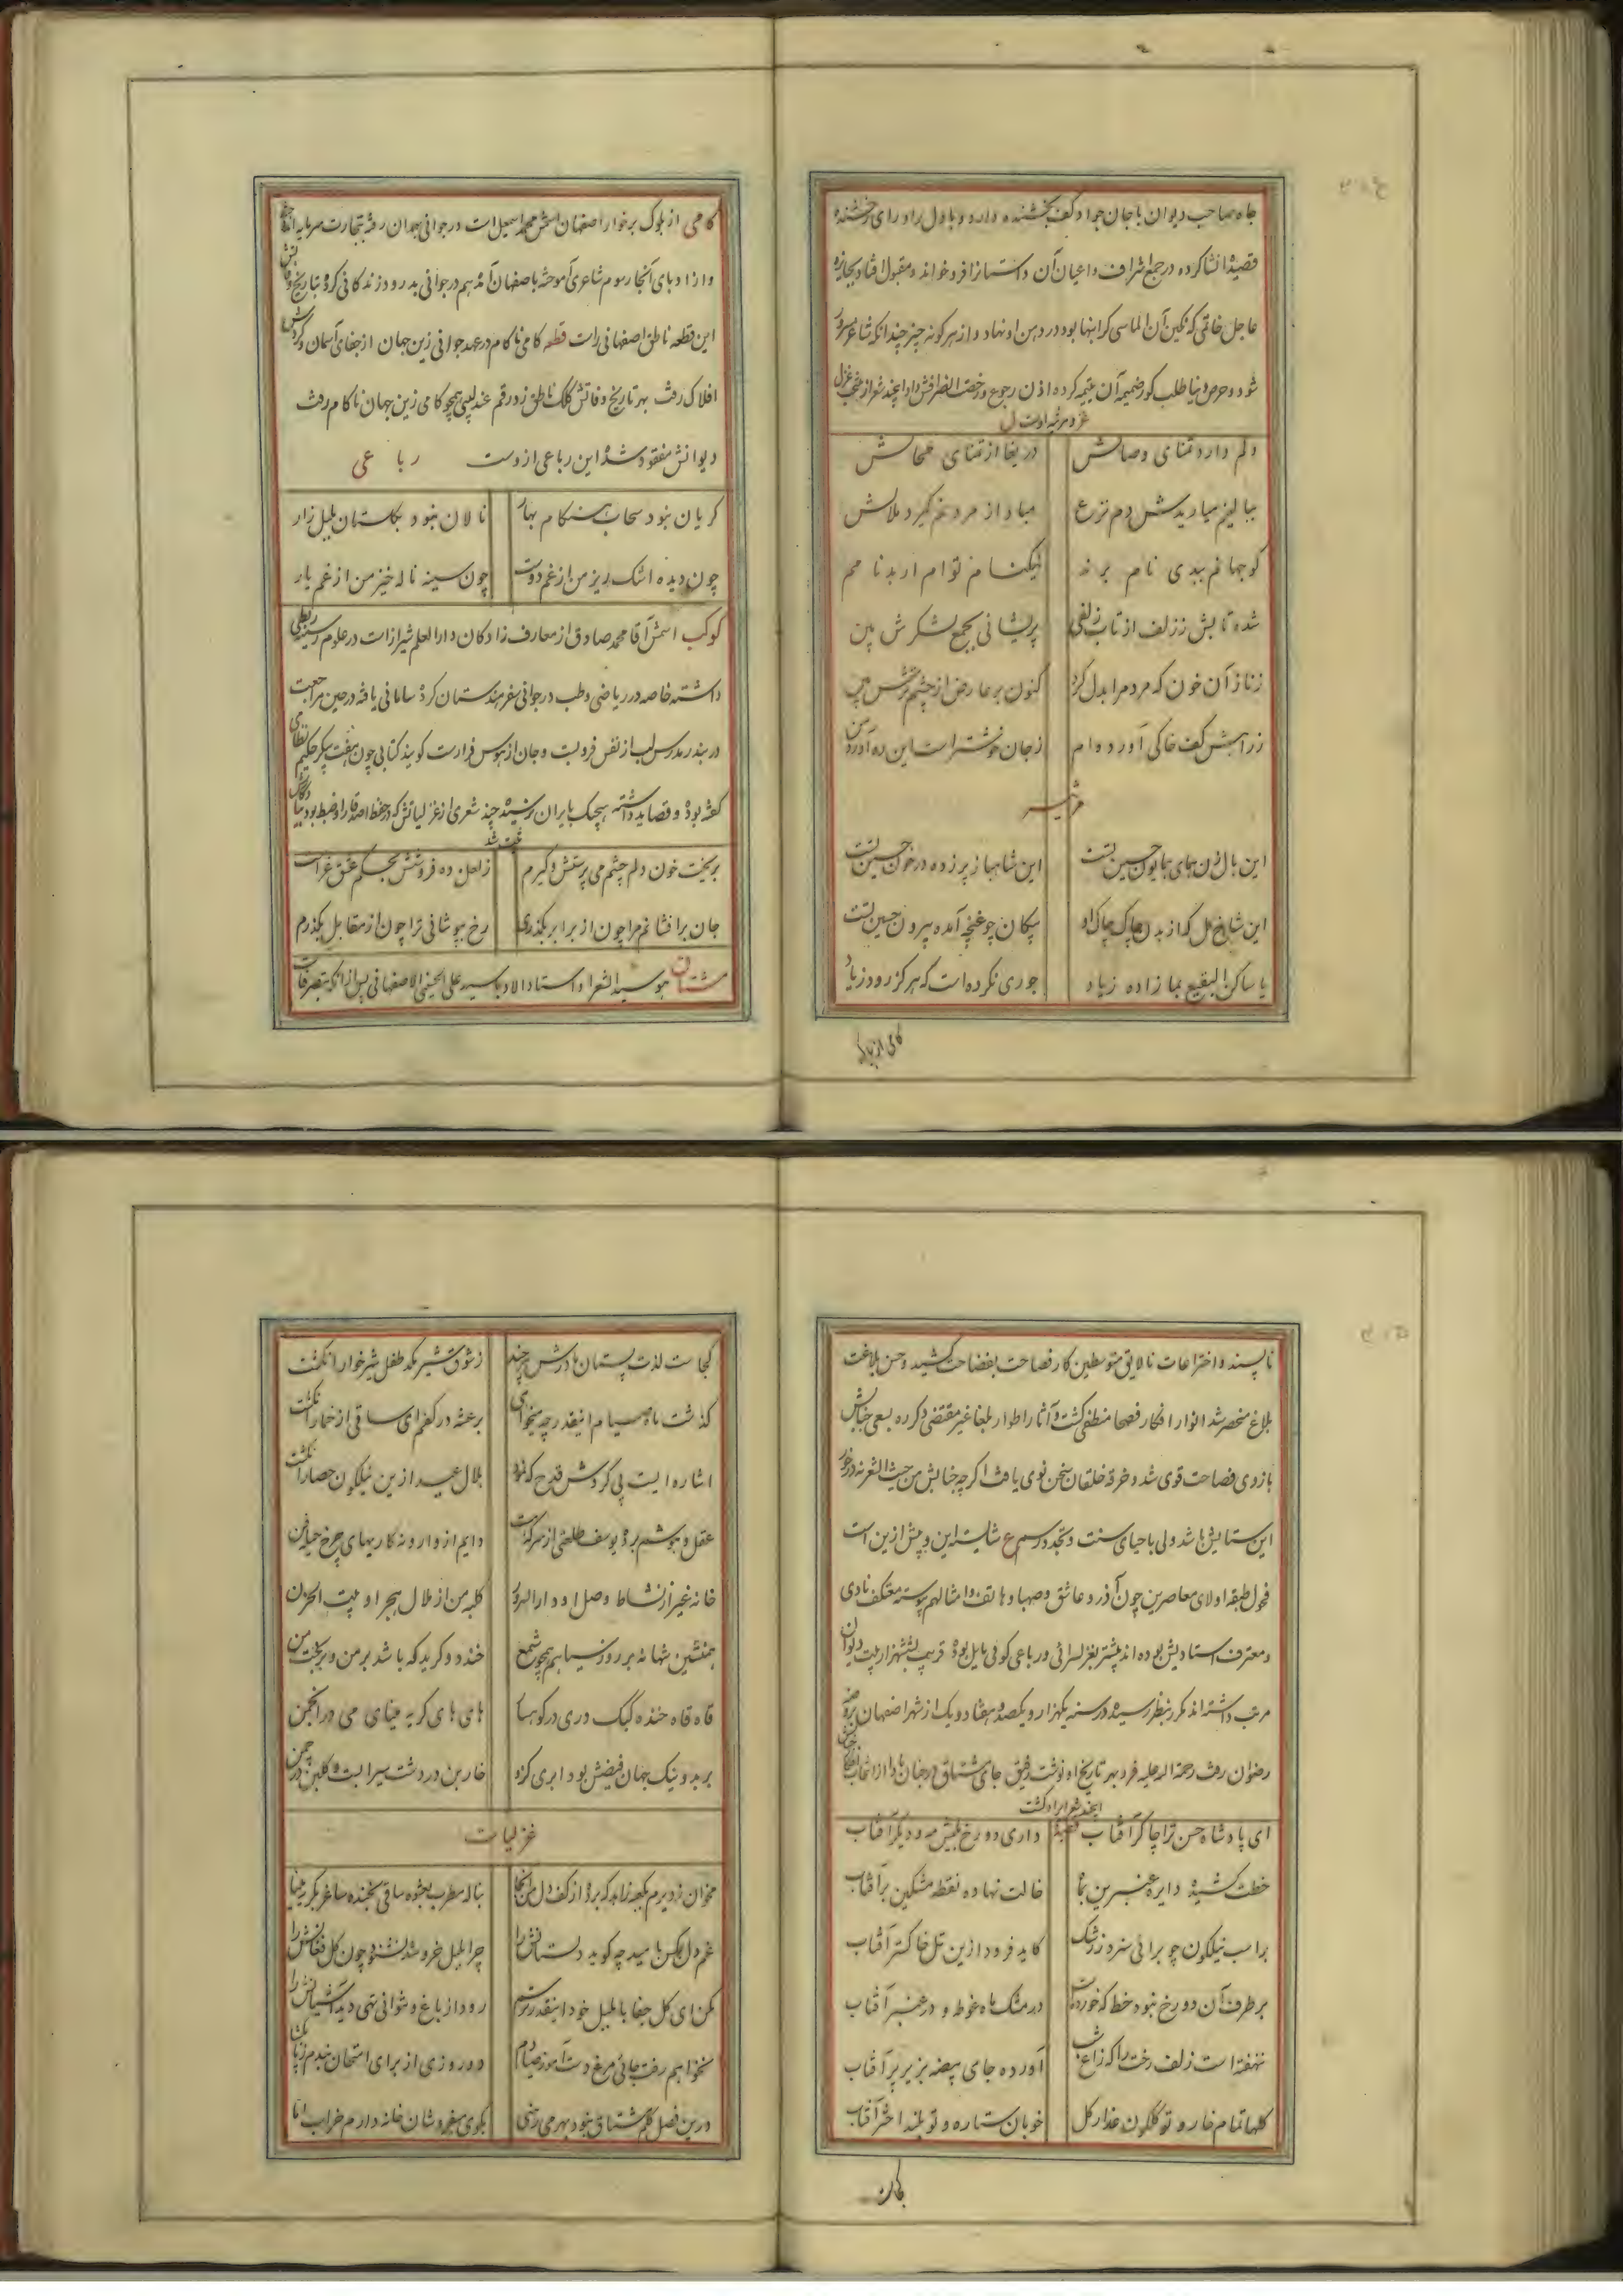 جاه صاحب دیوان با جان جواد و کف بخشنده دارد و با دل راد و رای رخشنده
قصیدهٔ انشا کرده در جمع اشراف و اعیان آن داستانرا فرو خواند و مقبول افتاد و بجایزه
عاجل خاتمی که نگین آن الماسی گرانبها بود در دهن او نهاد و از هر گونه چیز چندانکه شاعر مسرور
شود و حرص دنیا طلب کور ضمیمه آن عتیمه کرده اذن رجوع و رخصت انصرافش داد اینچند شعر از منتخب غزل
و مرثیه اوست
دلم دارد تمنای وصالش دریغا از تمنای محالش
ببالینم میاریدش دم نزع مبادا از مردنم گیرد ملالش
کو جهانم ببدی نام برند نیکنامم توام ار بدنامم
شده تابش ز زلف از تاب زلفی پریشانی بجمع لشگرش بین
زناز آن خون که مردم را بدل کرد کنون بر عارض از چشم ترش بین
ز راهش کف خاکی آورده‌ام ز جان خوشتر است این ره آورد من
مرثیه
این بال زن همای همایون حسین تست این شاهباز پر زده در خون حسین تست
این شاخ گل که از بدن چاک چاک او پیکان چو غنچه آمده بیرون حسین تست
یا ساکن البقیع بما زاده زیاد جوری نکرده است که هرگز رود ز یاد
کامی از بلوک
کامی از بلوک برخوار اصفهان اسمش محمد اسمعیل است در جوانی بهمدان رفته بتجارت سرمایه اندوخته
و از ادبای آنجا رسوم شاعری آموخته باصفهان آمد هم در جوانی بدرود زندگانی کرد تاریخ وفاتش
این قطعه ناطق اصفهانی راست قطعه کامی ناکام در عهد جوانی زین جهان از جفای آسمان و گردش
افلاک رفت بهر تاریخ وفاتش کلک ناطق زد رقم عندلیبی همچو کامی زین جهان ناکام رفت
دیوانش مفقود شده این رباعی ازوست رباعی
گریان نبود سحاب هنگام بهار نالان نبود بگلستان بلبل زار
چون دیده اشک ریز من از غم دوست چون سینه ناله خیز من از غم یار
کوکب اسمش آقا محمد صادق از معارف زادگان دارالعلم شیراز است در علوم رسمیه ربطی
داشته خاصه در ریاضی و طب در جوانی سفر هندستان کرده سامانی یافته در حین مراجعت
در بندر مدرس لب از نفس فروبست و جان از هوس فرارست گویند کتابی چون هفت پیکر حکیم نظامی
گفته بود و قصاید داشته هیچیک بایران نرسیده چند شعری از غزلیاتش که در حفظ اصدقا و ضبط بود بیادگار
ثبت شد
بریخت خون دلم چشم می پرستش و گیرم ز لعل ده فروشش بحکم عشق غرامت
جان برافشانم مرا چون از برابر بگذری رخ بپوشانی ترا چون از مقابل بگذرم
مشتاق هو سید الشعرا و استاد الادبا سید علی الحسینی الاصفهانی پس از آنکه بتصرفات
ناپسند و اختراعات نالایق متوسطین کار فصاحت بفضاحت کشید و حسن بلاغت
بلاغ منحصر شد انوار افکار فصحا منطفی گشت و آثار اطوار بلغا غیر مقتضی ذکر ده بسعی جنابش
بازوی فصاحت قوی شد و خرقه خلقان سخن نوی یافت اگرچه جنابش من حیث الشعر نه درخور
این ستایش باشد ولی باحیای سنت و تجدد رسم شایسته این و بیش ازین است
فحول طبقه اولای معاصرین چون آذر و عاشق و صهبا و هاتف و امثالهم پیوسته معتکف نادی
و معترف استادیش بوده‌اند بیشتر بغزلسرائی و رباعی گوئی مایل بوده قریب بششهزار بیت دیوان
مرتب داشته اند مکرر بنظر رسیده در سنه یکهزار و یکصد و هفتاد و یک از شهر اصفهان بروضه
رضوان رفت رحمة الله علیه فرد بهر تاریخ او نوشت رفیق جای مشتاق در جنان بادا از انتخاب
اینچند شعر ایراد گشت
ای پادشاه حسن ترا چاکر آفتاب قصیده داری دو رخ یکیش مه و دیگر آفتاب
خطت کشیده دایره عنبرین بماه خالت نهاده نقطه مشکین بر آفتاب
بر اسب نیلگون چو برائی سزد ز رشک کاید فرود ازین تل خاکستر آفتاب
بر طرف آن دو رخ نبود خط که خورده است در مشک ماه غوطه و در عنبر آفتاب
نهفته است زلف رخت را که زاغ شب آورده جای بیضه بزیر پر آفتاب
گلها تمام خار و تو گلگون عذار گل خوبان ستاره و تو بلند اختر آفتاب
کجاست لذت پستان مادرش هر چند ز شوق شیر مکد طفل شیرخوار انگشت
گذشت ماه صیام اینقدر چه میخوائی برعشه در کفم ای ساقی از خمار انگشت
اشاره ایست پی گردش قدح که نمود هلال عید ازین نیلگون حصار انگشت
عقل و هوشم برد یوسف طلعتی از سر که هست دایم از وارونه کاریهای چرخ حیله فن
خانه غیر از نشاط وصل او دار السرور کلبه من از ملال هجر او بیت الحزن
همنشین شبها نه بر روز سیاهم همچو شمع خندد و گرید که باشد بر من و بر بخت من
قاه قاه خنده کبک دری در کوهسار های های گریه مینای می در انجمن
بر بد و نیک جهان فیضش بود ابری کزو خار بن در دشت سیرابست و گلبن در چمن
غزلیات
مخوان ز دیرم بکعبه زاهد که برده از کف دل من آنجا بناله مطرب بعشوه ساقی بخنده ساغر بگریه مینا
غم دل کس بامید چه گوید دلستانش را چرا بلبل خروشد نشنود چون گل فغانش را
مکن ای گل جفا با بلبل خود اینقدر ترسم رود از باغ و نتوانی تهی دید آشیانش را
نخواهم رفت جائی مرغ دست آموز صیادم دو روزی از برای امتحان بندم زپا بگشا
درین فصل گلم مشتاق نبود بهر می رنجی بکوی میفروشان خانه دارم خراب اما